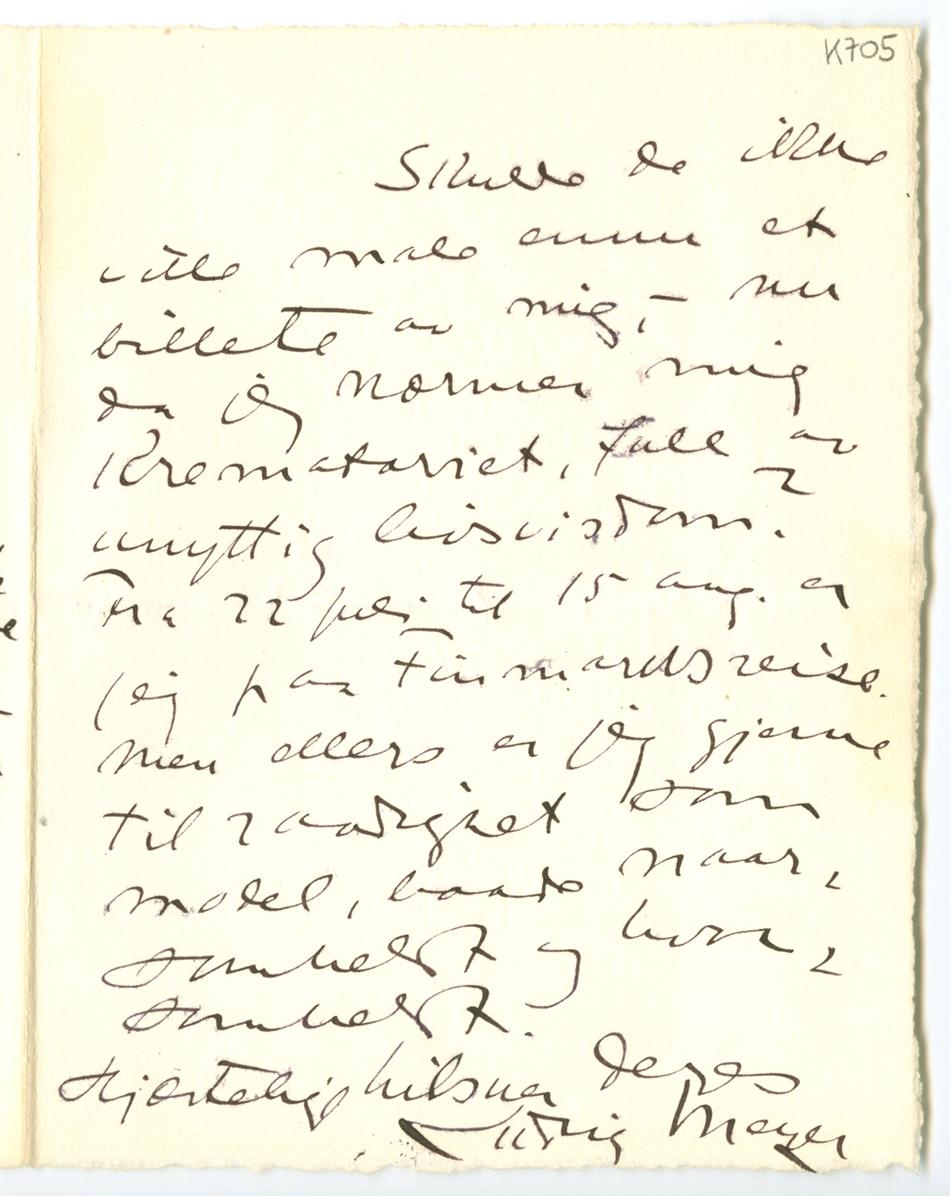 K705
Skulde de ikke
ville male ennu et
billete av mig, – nu
da jeg nærmer mig
Krematoriet, full av
unyttig livsvisdom?
Fra 22 juli til 15 aug. er
jeg paa Finmarksreise.
men ellers er jeg gjerne
til raadighet som
model, baade naar-
somhelst og hvor-
somhelst.
Hjærtelig hilsner Deres
Ludvig Meyer